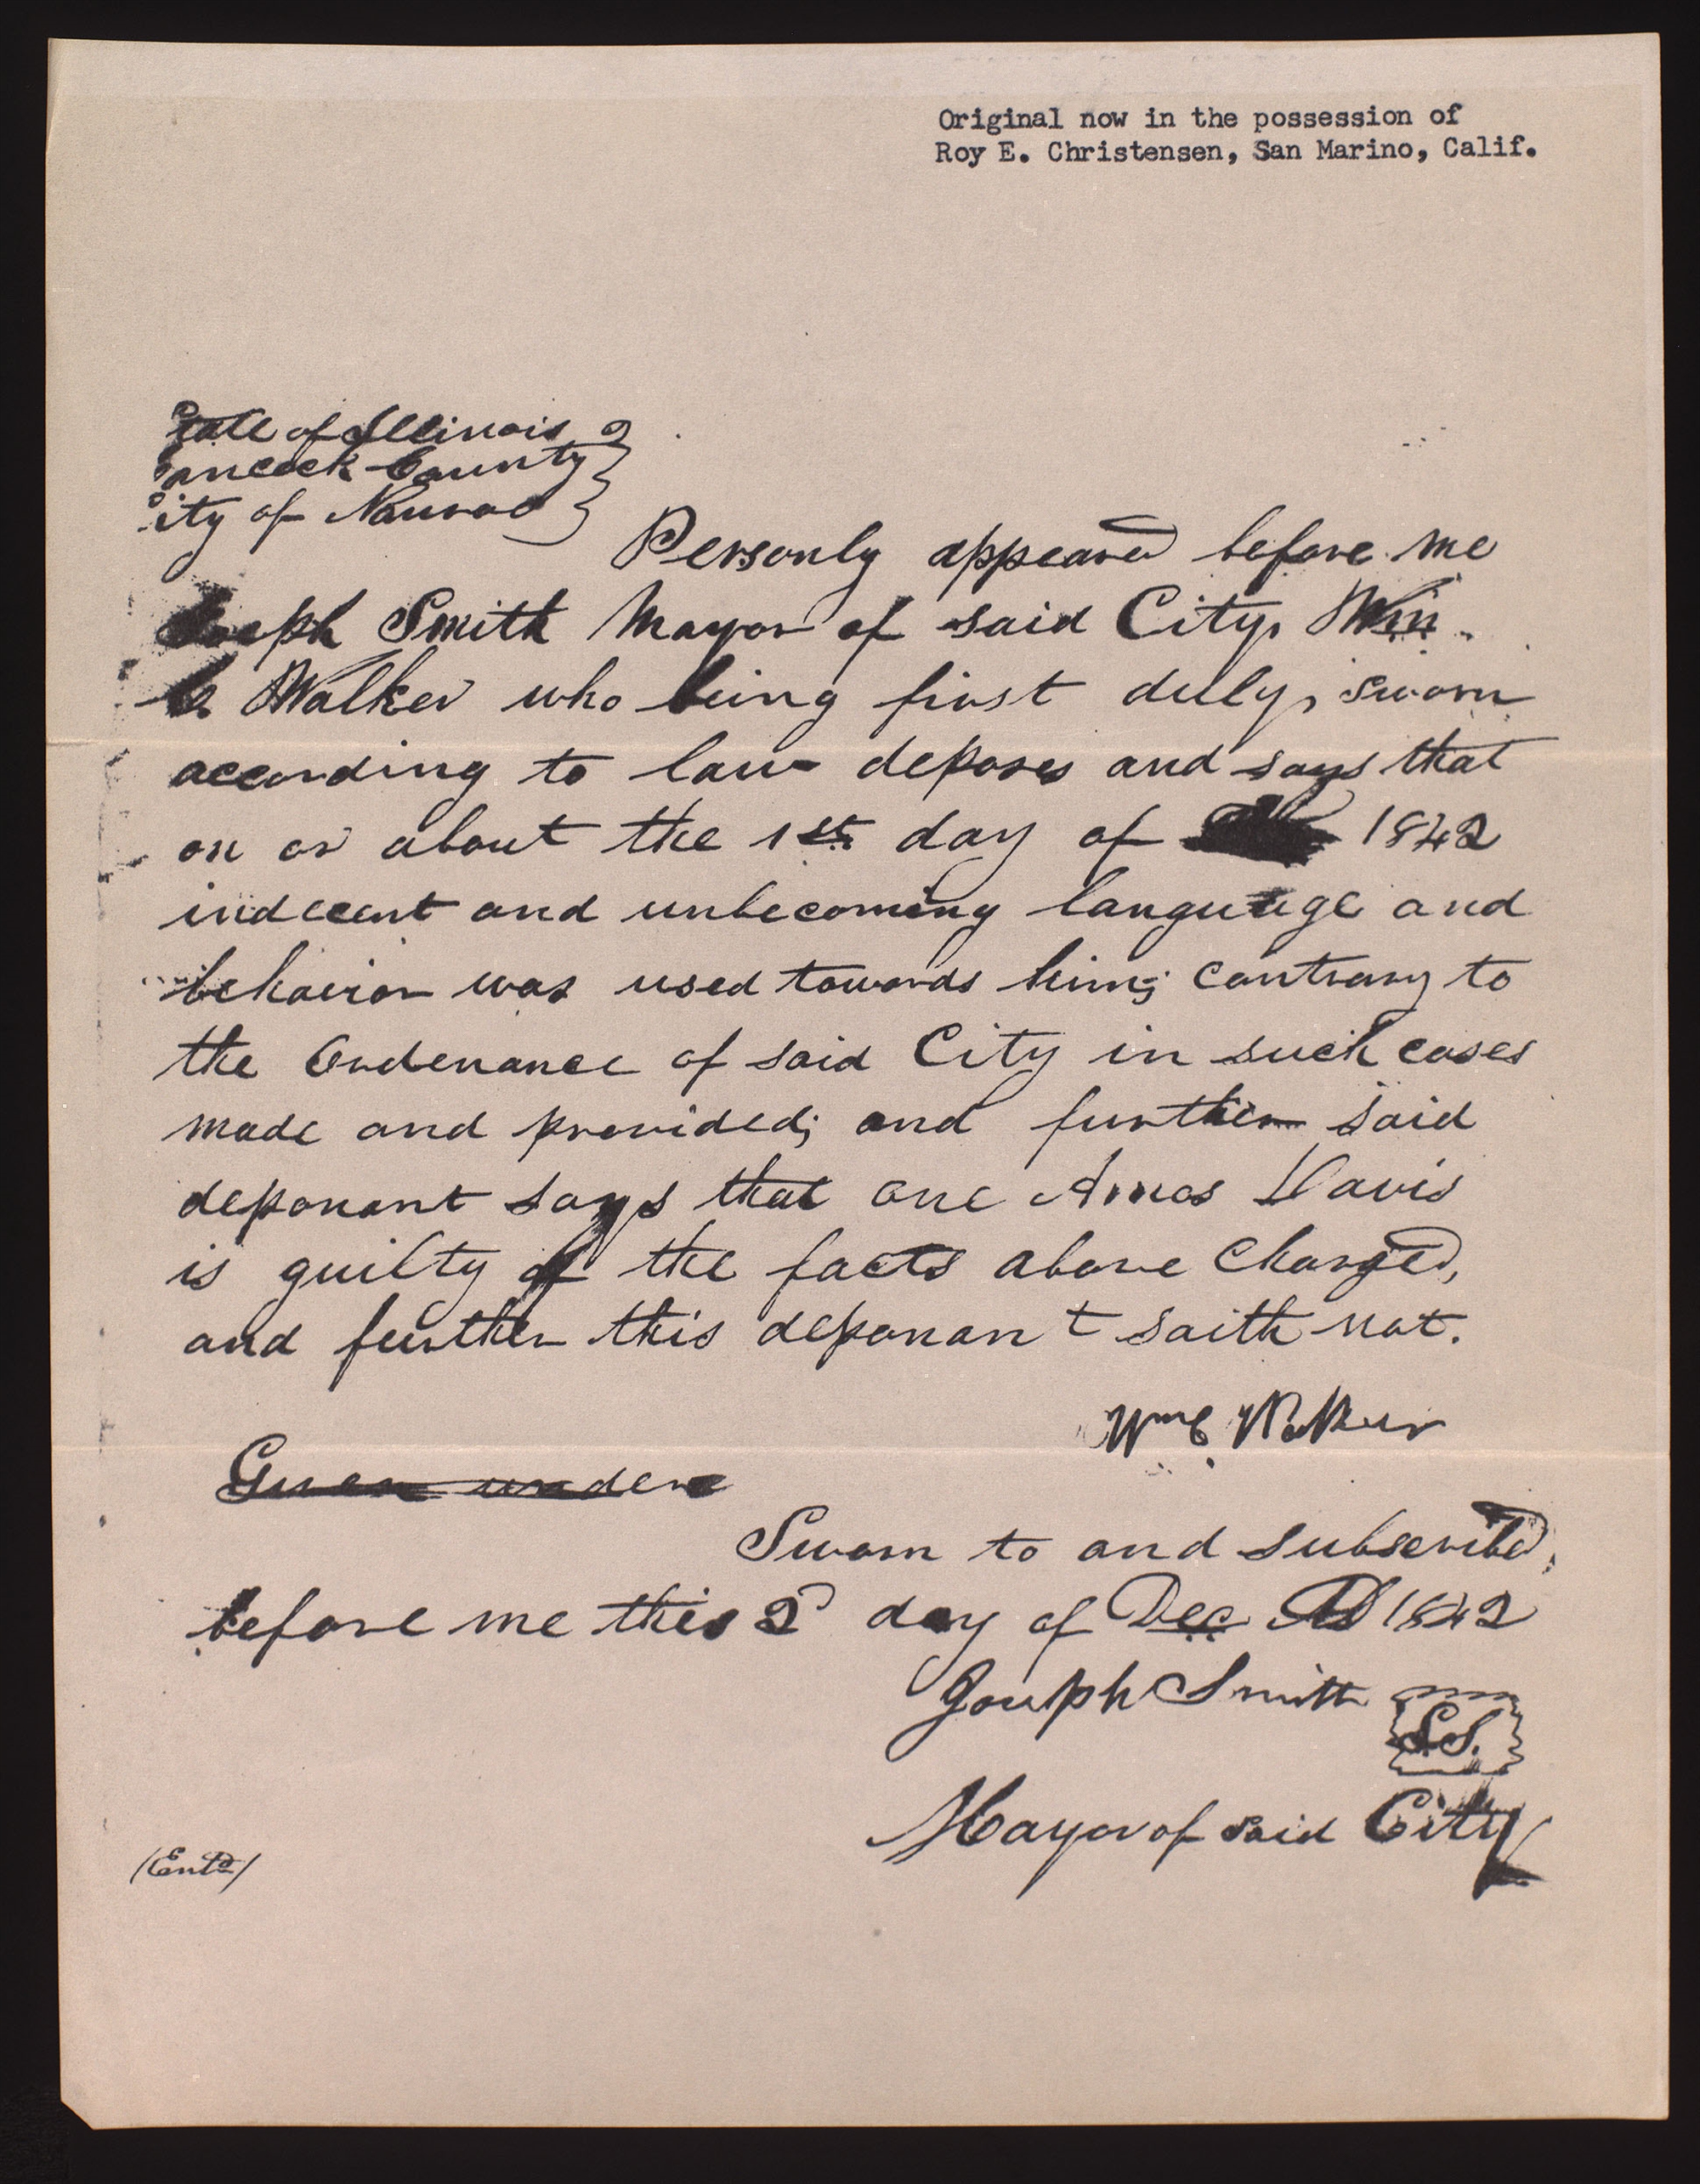 Original now in the possession of
Roy E. Christensen, San Marino, Calif.
State of Illinois
ancock County
ity of Nauvoo
Personly appeared before me
Joseph Smith Mayor of said City, Wm
C. Walker who being first duly, sworn
according to law deposes and says that
on or about the 1st day of 1842
indecent and unbecoming language and
behavior was used towards him; contrary to
the Ordenance of said City in such cases
made and provided; and further said
deponant says that one Amos Davis
is guilty of the facts above Charged,
and further this deponant saith not.
Wm C Walker
Given under
Sworn to and subscribed,
before me this 2d day of Dec AD 1842
Joseph Smith
L.S.
Mayor of said City
(Entd)